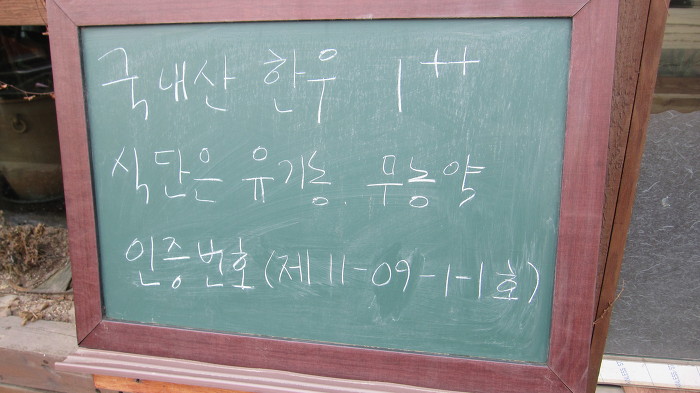 국내산 한우 1++
식단은 유기농. 무농약
인증번호(제 11-09-1-1호)